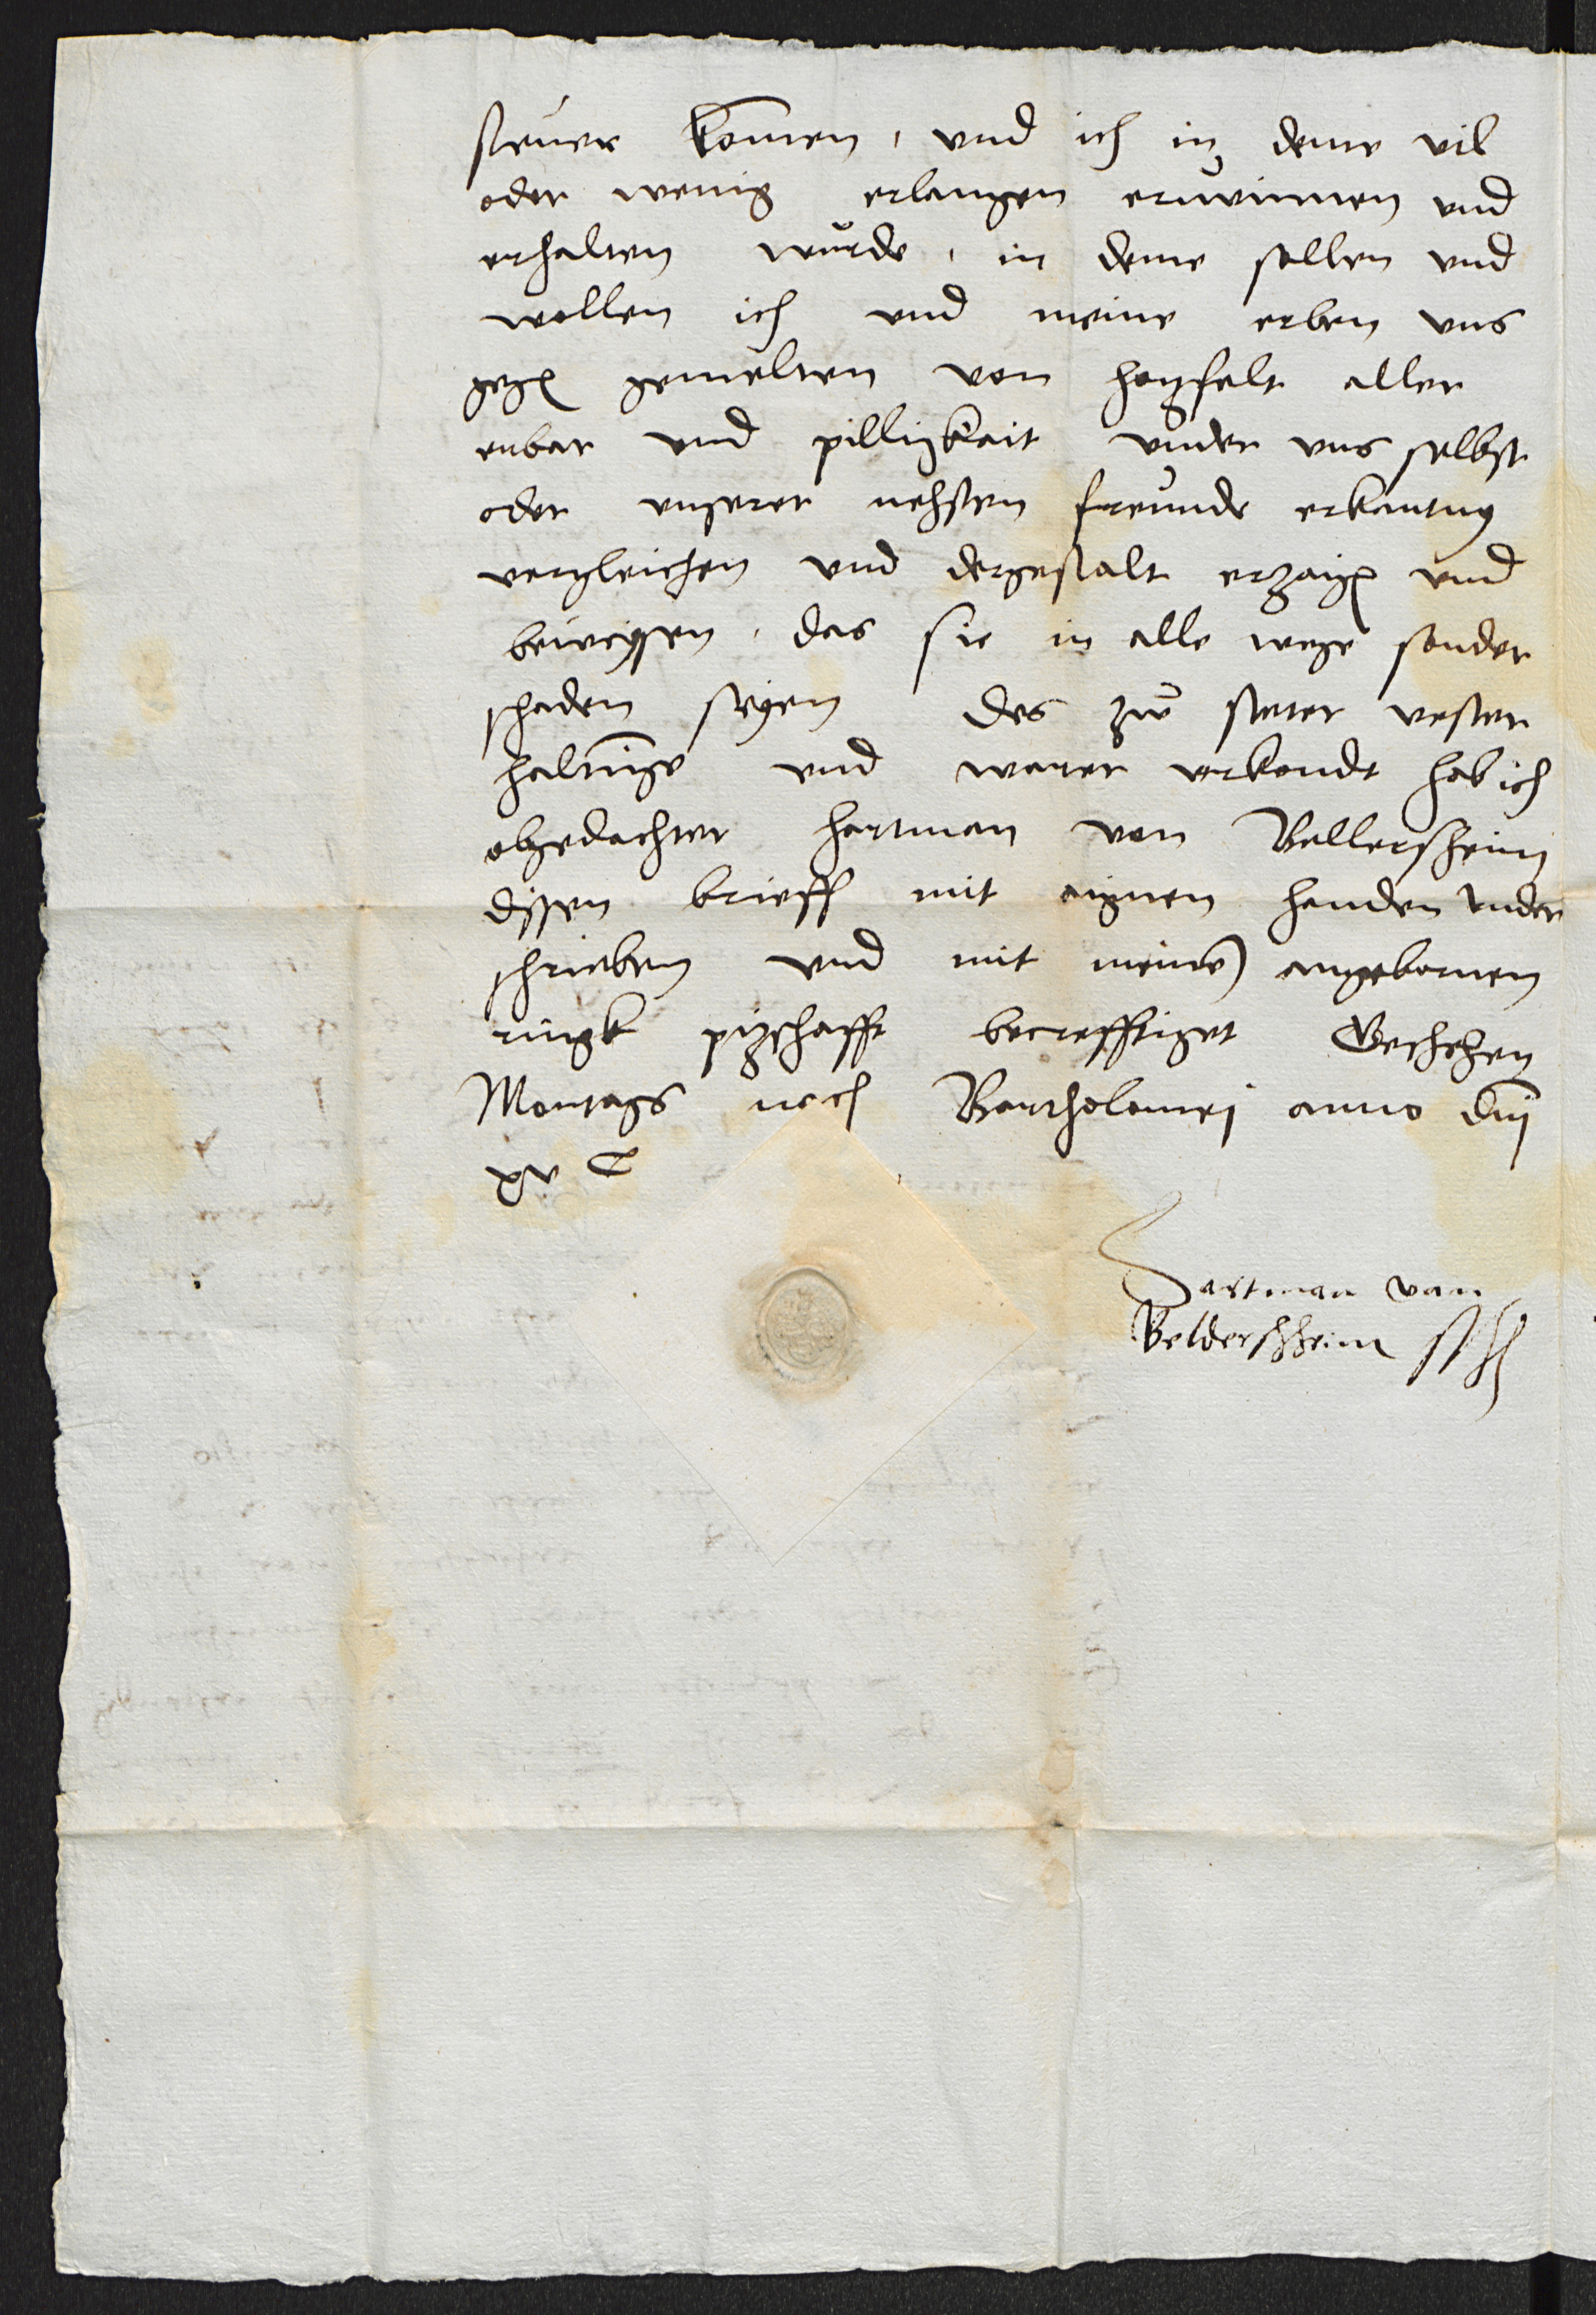 steuer komen, vnd ich in deme vil
oder wenig erlangen eruwinnen vnd
erhalten wurde, in deme sollen vnd
wollen ich vnd meine erben vns
gegen gemelten von hatzfelt aller
erbar vnd pilligkait vnder vns selbst
oder vnserer nehsten freunde erkantnus
vergleichen vnd dergestalt erzaigen vnd
beweysen, das sie in alle wege sonder
schaden seyen Des zw steter vester
haltunge vnd warer vrkondt hab ich
obgedachter hartman von Bellersheim
dissen brieff mit aignen handen vnder
schrieben vnd mit meinem angebornen
ringk pitzschafft becrefftiget Geschehen
Montags nach Bartholomej anno dnj
xv C
Hartman van
Beldersheim ssst